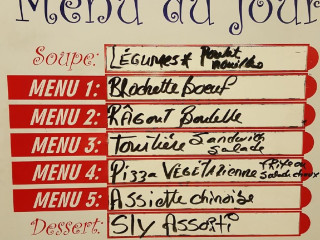 Menu du Jour
Soupe: LÉgumes * Poulet nouilles
MENU 1: BRochette Boeuf
MENU 2: RÂGout Boulette
MENU 3: Sandwich salade
MENU 4: Pizza VÉGÉtARienne salade choux
MENU 5: Assiette chinoise
Dessert: Sly Assorti